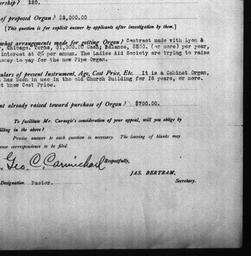 ership? 220.
of proposed Organ? $2,000.00
[This question is for explicit answer by applicants after investigation by them.]
what arrangements made for getting Organ? Contract made with Lyon &
, Chicago, Terms, $1,000.00 Cash, Balance, $250. (or more) per year,
interest at 6% per annum. The Ladies Aid Society are trying to raise
away to pay for the new Pipe Organ.
culars of present Instrument, Age, Cost Price, Etc. It is a Cabinet Organ,
has been in use in the old Church Building for 15 years, or more.
not know Cost Price.
nt already raised toward purchase of Organ? $700.00.
To facilitate Mr. Carnegie's consideration of your appeal, will you oblige by
filling in the above?
Precise answer to each question is necessary. The leaving of blanks may
cause correspondence to be filed.
Respectfully,
Geo. C. Carmichael
JAS. BERTRAM,
Secretary.
Designation Pastor.